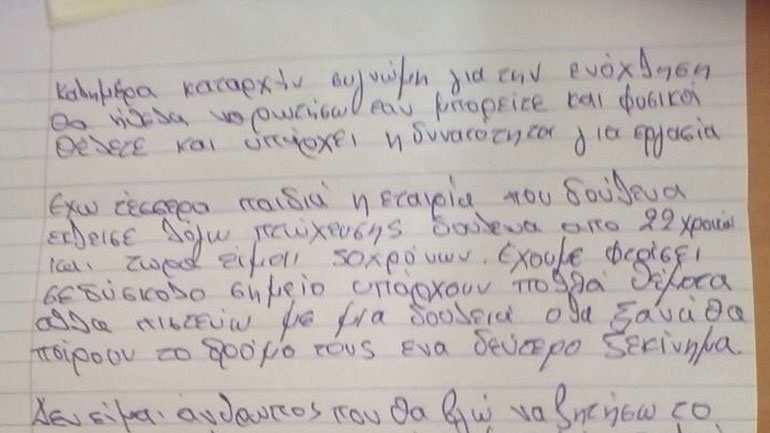 καλημέρα καταρχήν συγνώμη για την ενόχληση
θα ήθελα να ρωτήσω εαν μπορείτε και φυσικά
θέλετε και υπάρχει η δυνατοτητα για εργασία
Εχω τέσσερα παιδιά η εταιρία που δούλευα
εκλεισε λόγω πτώχευσης δούλευα απο 22 χρονών
και τωρα είμαι 50χρόνων. Εχουμε φτάσει
σε δύσκολο σημείο υπάρχουν πολλά θέματα
αλλα πιστεύω με μια δουλειά ολα ξανά θα
πάρουν το δρόμο τους ενα δεύτερο ξεκίνημα.
Δεν είμαι άνθρωπος που θα βγώ να ζητήσω το